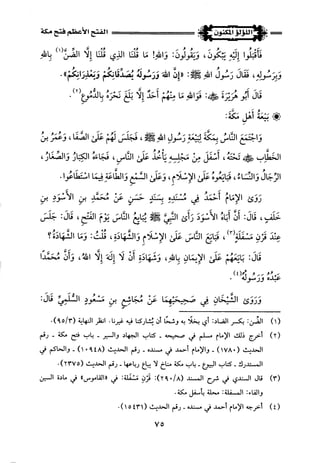 الفتح الأعظم فتح مكة
اللؤلؤ المكنون
فأقبلوا إليه يبكون، ويقولون: والله! ما قلنا الذي قلنا إلا الضن(١) بالله
وبرسوله، فقال رسول الله ﷺ: «إن الله ورسوله يصدقانكم ويعذرانكم».
قال أبو هريرة ﵁: فوالله ما منهم أحد إلا بل نحره بالدموع(٢).
* بيعة أهل مكة:
واجتمع الناس بمكة لبيعة رسول الله ﷺ، فجلس لهم على الصفا، وعمر بن
الخطاب ﵁ تحته، أسفل من مجلسه يأخذ على الناس، فجاءه الكبار والصغار،
الرجال والنساء، فبايعوه على الإسلام، وعلى السمع والطاعة فيما استطاعوا.
روى الإمام أحمد في مسنده بسند حسن عن محمد بن الأسود بن
خلف، قال: أن أباه الأسود رأى النبي ﷺ يبايع الناس يوم الفتح، قال: جلس
عند قرن مسقلة(٣)، فبايع الناس على الإسلام والشهادة، قلت: وما الشهادة؟
قال: بايعهم على الإيمان بالله، وشهادة أن لا إله إلا الله، وأن محمدا
عبده ورسوله(٤).
وروى الشيخان في صحيحيهما عن مجاشع بن مسعود السلمي قال:
(١) الضن: بكسر الضاد: أي بخلا به وشحا أن يشاركنا فيه غيرنا. انظر النهاية (٩٥/٣).
(٢) أخرج ذلك الإمام مسلم في صحيحه - كتاب الجهاد والسير - باب فتح مكة - رقم
الحديث (١٧٨٠) - والإمام أحمد في مسنده - رقم الحديث (١٠٩٤٨) - والحاكم في
المستدرك - كتاب البيوع - باب مكة مناخ لا يباع رباعها - رقم الحديث (٢٣٧٥).
(٣) قال السندي في شرح المسند (٢٩٠/٨): قرن مسقلة: في «القاموس» في مادة السين
والفاء: المسفلة: محلة بأسفل مكة.
(٤) أخرجه الإمام أحمد في مسنده - رقم الحديث (١٥٤٣١).
٧٥